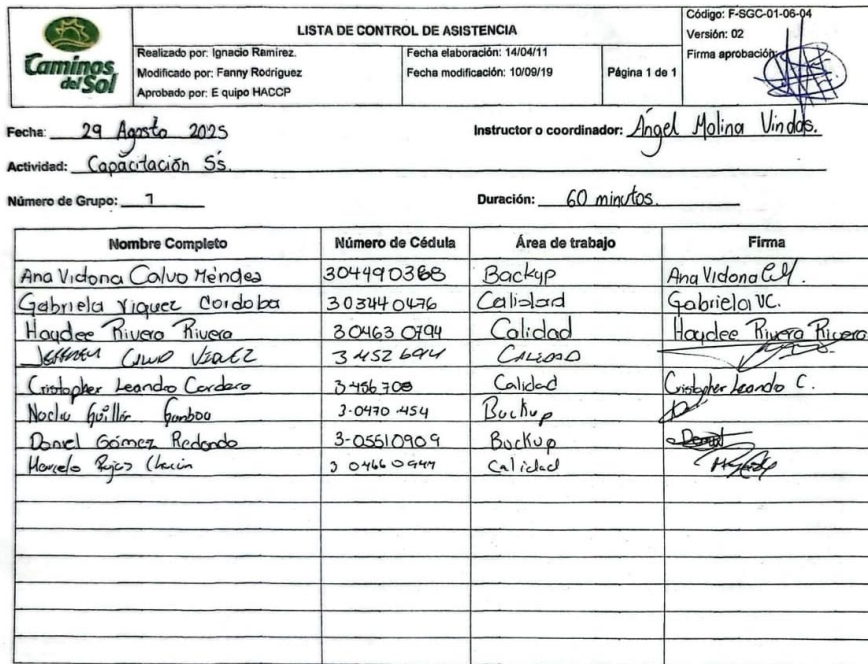 Caminos del Sol
LISTA DE CONTROL DE ASISTENCIA
Realizado por: Ignacio Ramírez.
Modificado por: Fanny Rodríguez
Aprobado por: E quipo HACCP
Fecha elaboración: 14/04/11
Fecha modificación: 10/09/19
Página 1 de 1
Código: F-SGC-01-06-04
Versión: 02
Firma aprobación:
Fecha: 29 Agosto 2025
Instructor o coordinador: Ángel Molina Vindas.
Actividad: Capacitación 5's.
Número de Grupo: 1
Duración: 60 minutos.
Nombre Completo Número de Cédula Área de trabajo Firma
Ana Vidona Calvo Méndez 304490368 Backup Ana Vidona
Gabriela Viquez Cordoba 303440476 Calidad Gabriela VC.
Haydee Rivera Rivera 304630794 Calidad Haydee Rivera Rivera
3 452 694 CALIDAD
Cristopher Leandro Cordero 3 456 708 Calidad Cristopher Leandro C.
Guillén 3-0470 454 Backup
Daniel Gómez Redondo 3-05510909 Backup Daniel
Marcelo Calidad